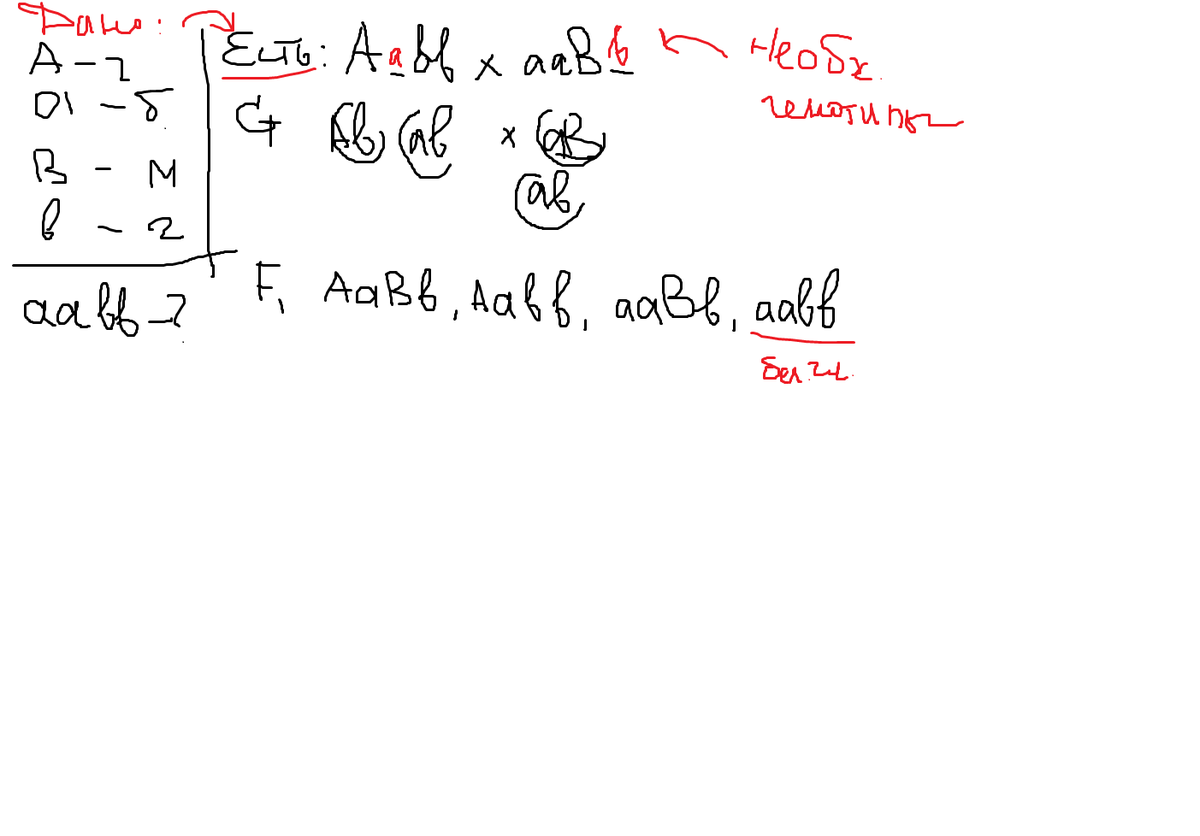 Дано:
А - ч
а - б
В - м
в - г
аавв - ?
Есть: Аавв х ааВв
Необх.
генотипы
G Ав ав х аВ
ав
F₁ АаВв, Аавв, ааВв, аавв
бел. гл.